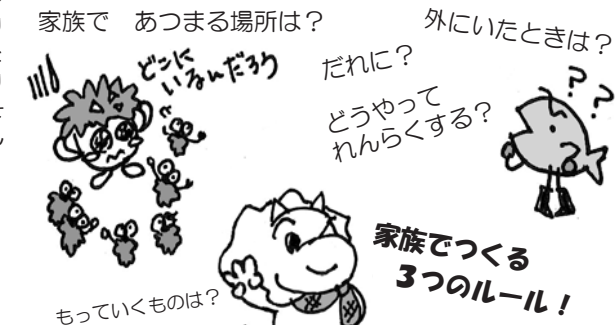 家族で　あつまる場所は？
外にいたときは？
どこに
いるんだろう
だれに？
どうやって
れんらくする？
？？
家族でつくる
３つのルール！
もっていくものは？